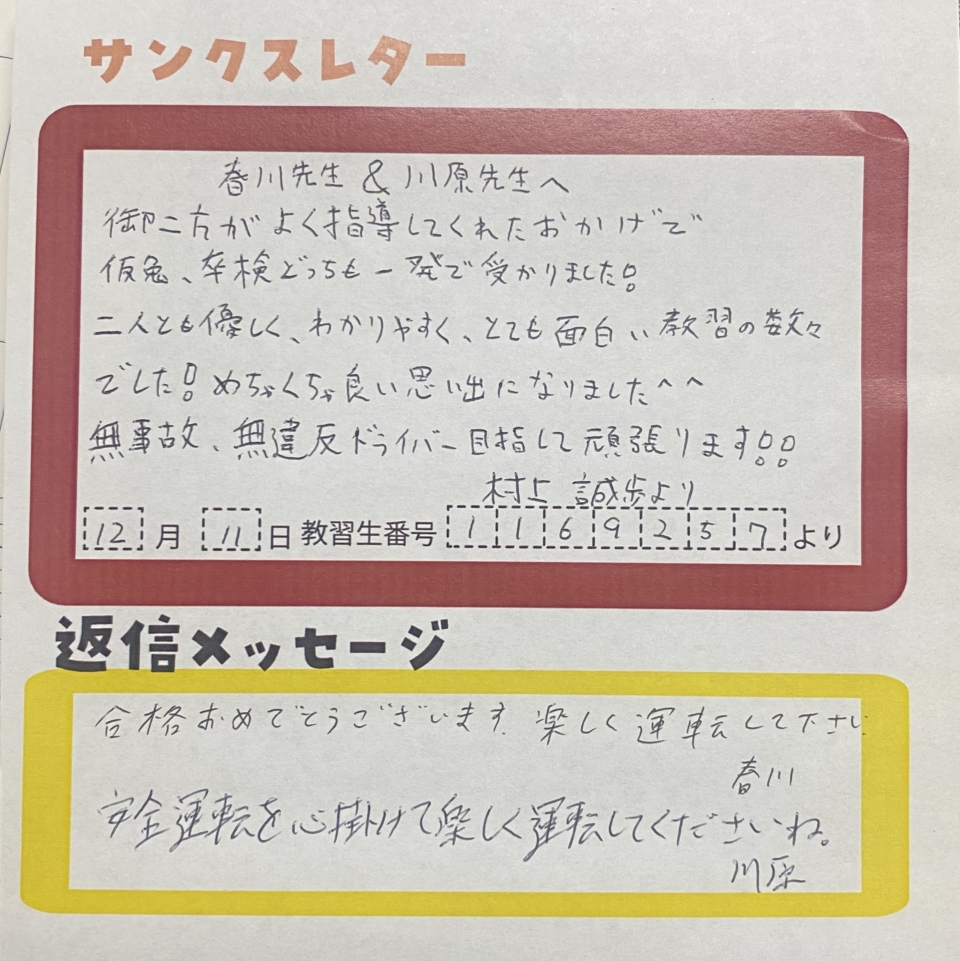 サンクスレター
春川先生 & 川原先生へ
御二方がよく指導してくれたおかげで
仮免、卒検どっちも一発で受かりました!
二人とも優しく、わかりやすく、とても面白い教習の数々
でした!めちゃくちゃ良い思い出になりました^^
無事故、無違反ドライバー目指して頑張ります!!
村上 誠歩より
12月11日教習生番号1169257より
返信メッセージ
合格おめでとうございます。楽しく運転して下さい
春川
安全運転を心掛けて楽しく運転してくださいね。
川原